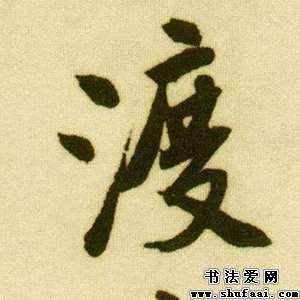 渡
书法爱网
www.shufaai.com